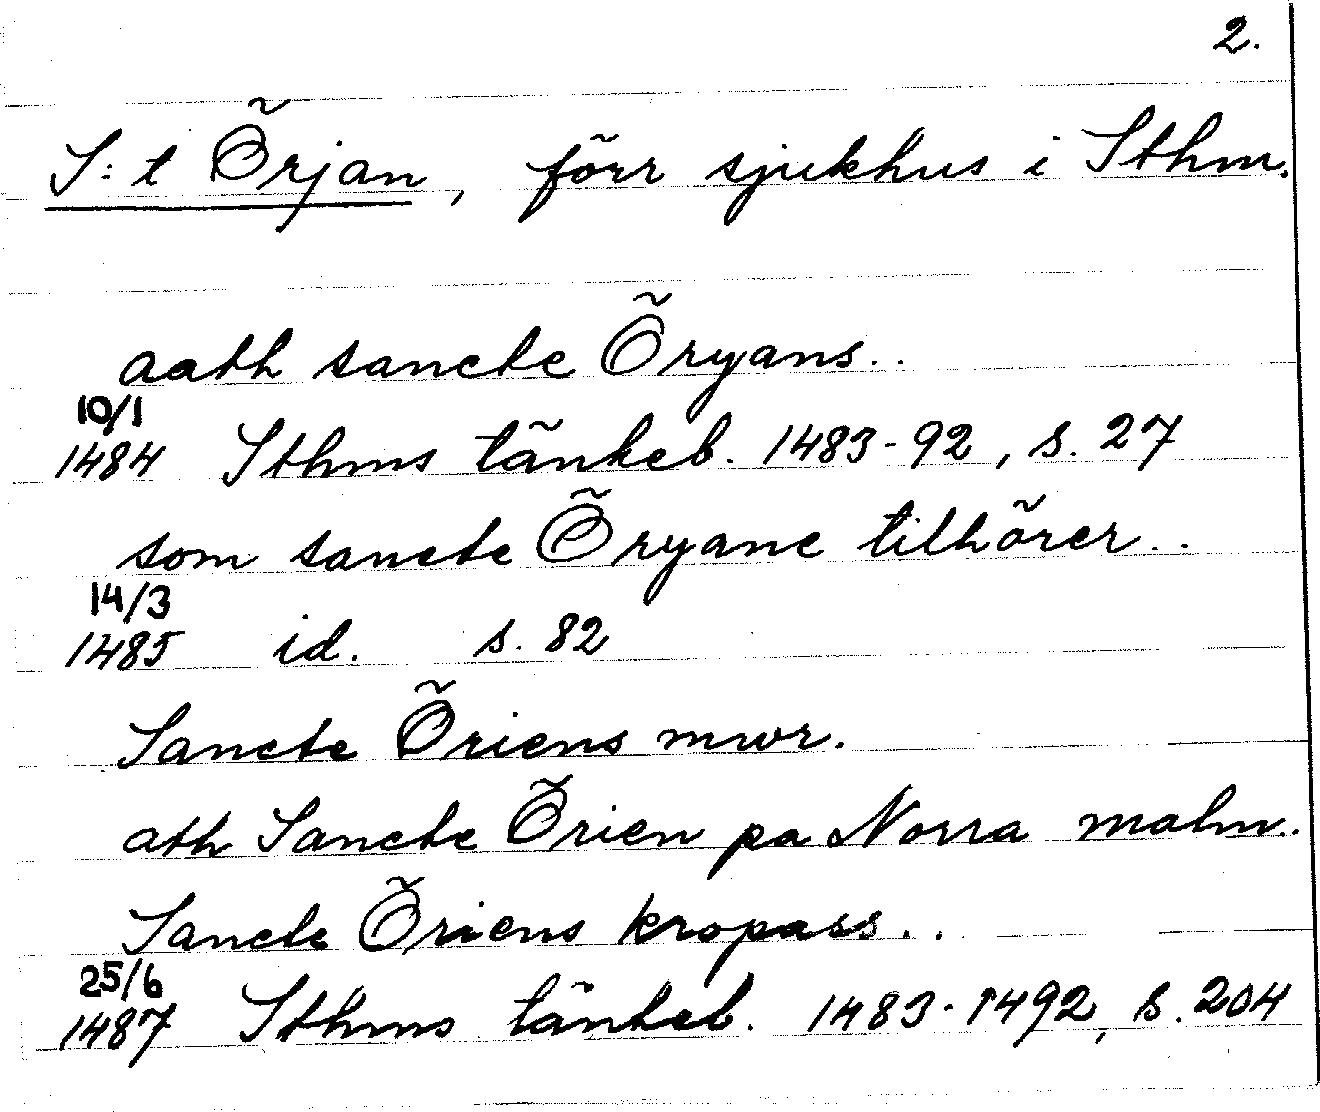 2.
S:t Örjan, förr sjukhus i Sthm.
aath sancte Öryans..
10/1
1484 Sthms tänkeb. 1483-92, s. 27
som sancte Öryane tilhörer..
14/3
1485 id. s. 82
Sancte Öriens mwr.
ath Sancte Örien pa Norra malm.
Sancte Öriens kropass..
25/6
1487 Sthms tänkeb. 1483-1492, s. 204